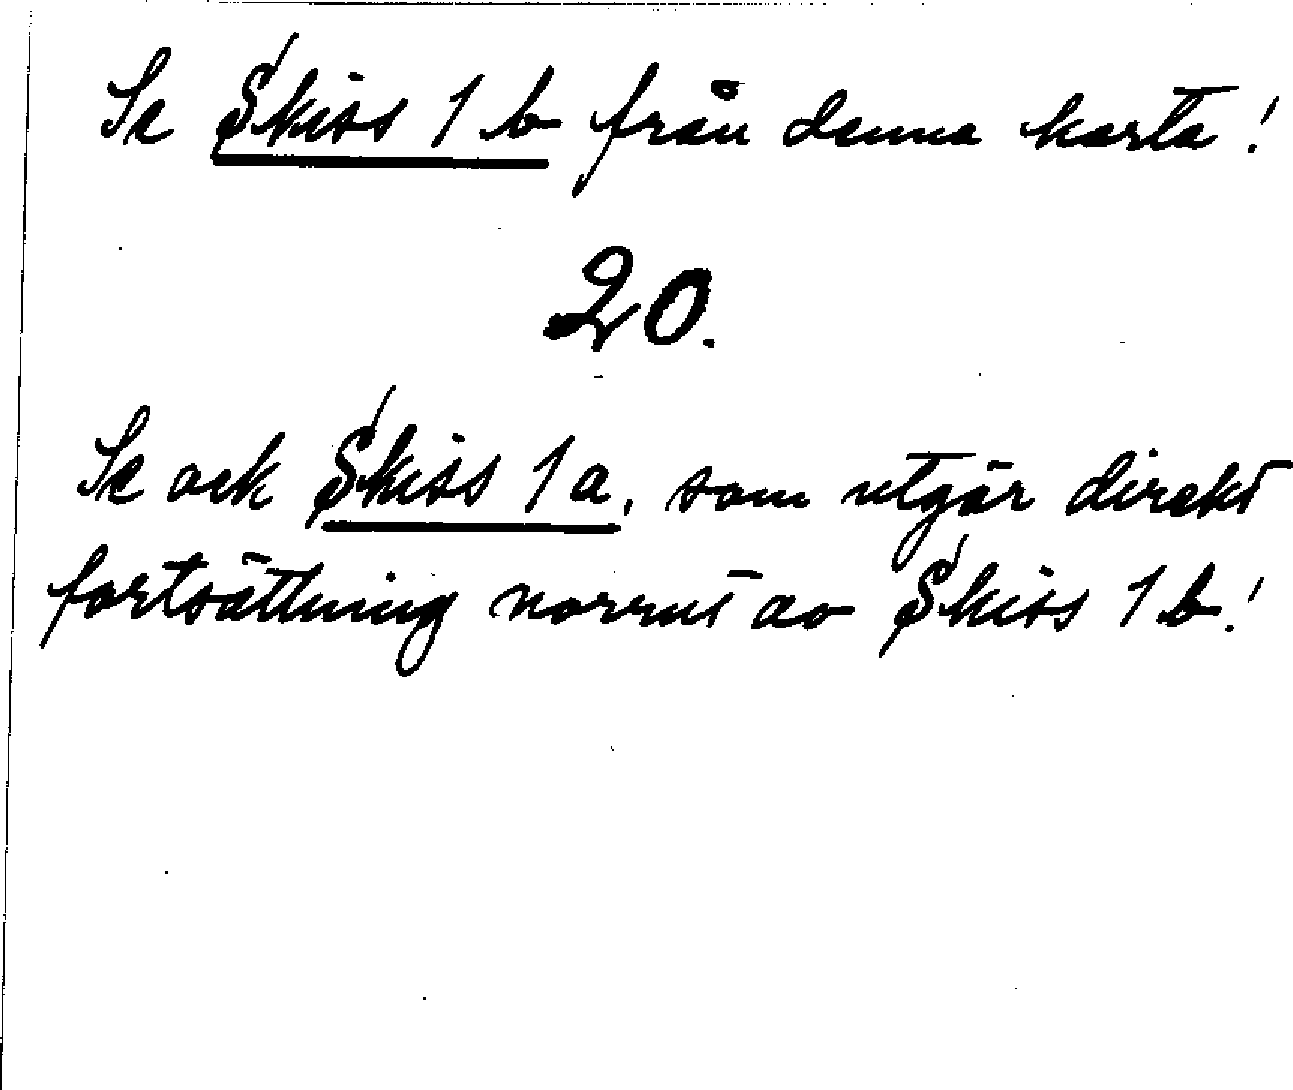 Se Skiss 1 b från denna karta!
20.
Se ock Skiss 1 a, som utgör direkt
fortsättning norrut av Skiss 1 b!